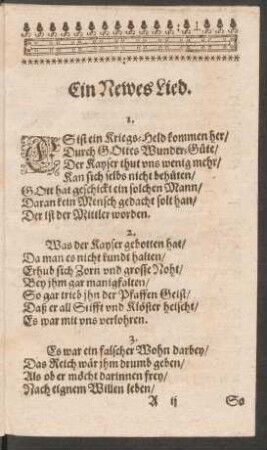 Ein Newes Lied.
1.
ES ist ein Kriegs-Held kommen her/
Durch GOttes Wunder-Güte/
Der Kayser thut vns wenig mehr/
Kan sich selbs nicht behüten/
GOtt hat geschickt ein solchen Mann/
Daran kein Mensch gedacht solt han/
Der ist der Mittler worden.
2.
Was der Kayser gebotten hat/
Da man es nicht kundt halten/
Erhub sich Zorn vnd grosse Noht/
Bey jhm gar manigfalten/
So gar trieb jhn der Pfaffen Geist/
Daß er all Stifft vnd Klöster heischt/
Es war mit vns verlohren.
3.
Es war ein falscher Wohn darbey/
Das Reich wär jhm drumb geben/
Als ob er möcht darinnen frey/
Nach eignem Willen leben/
A ij So